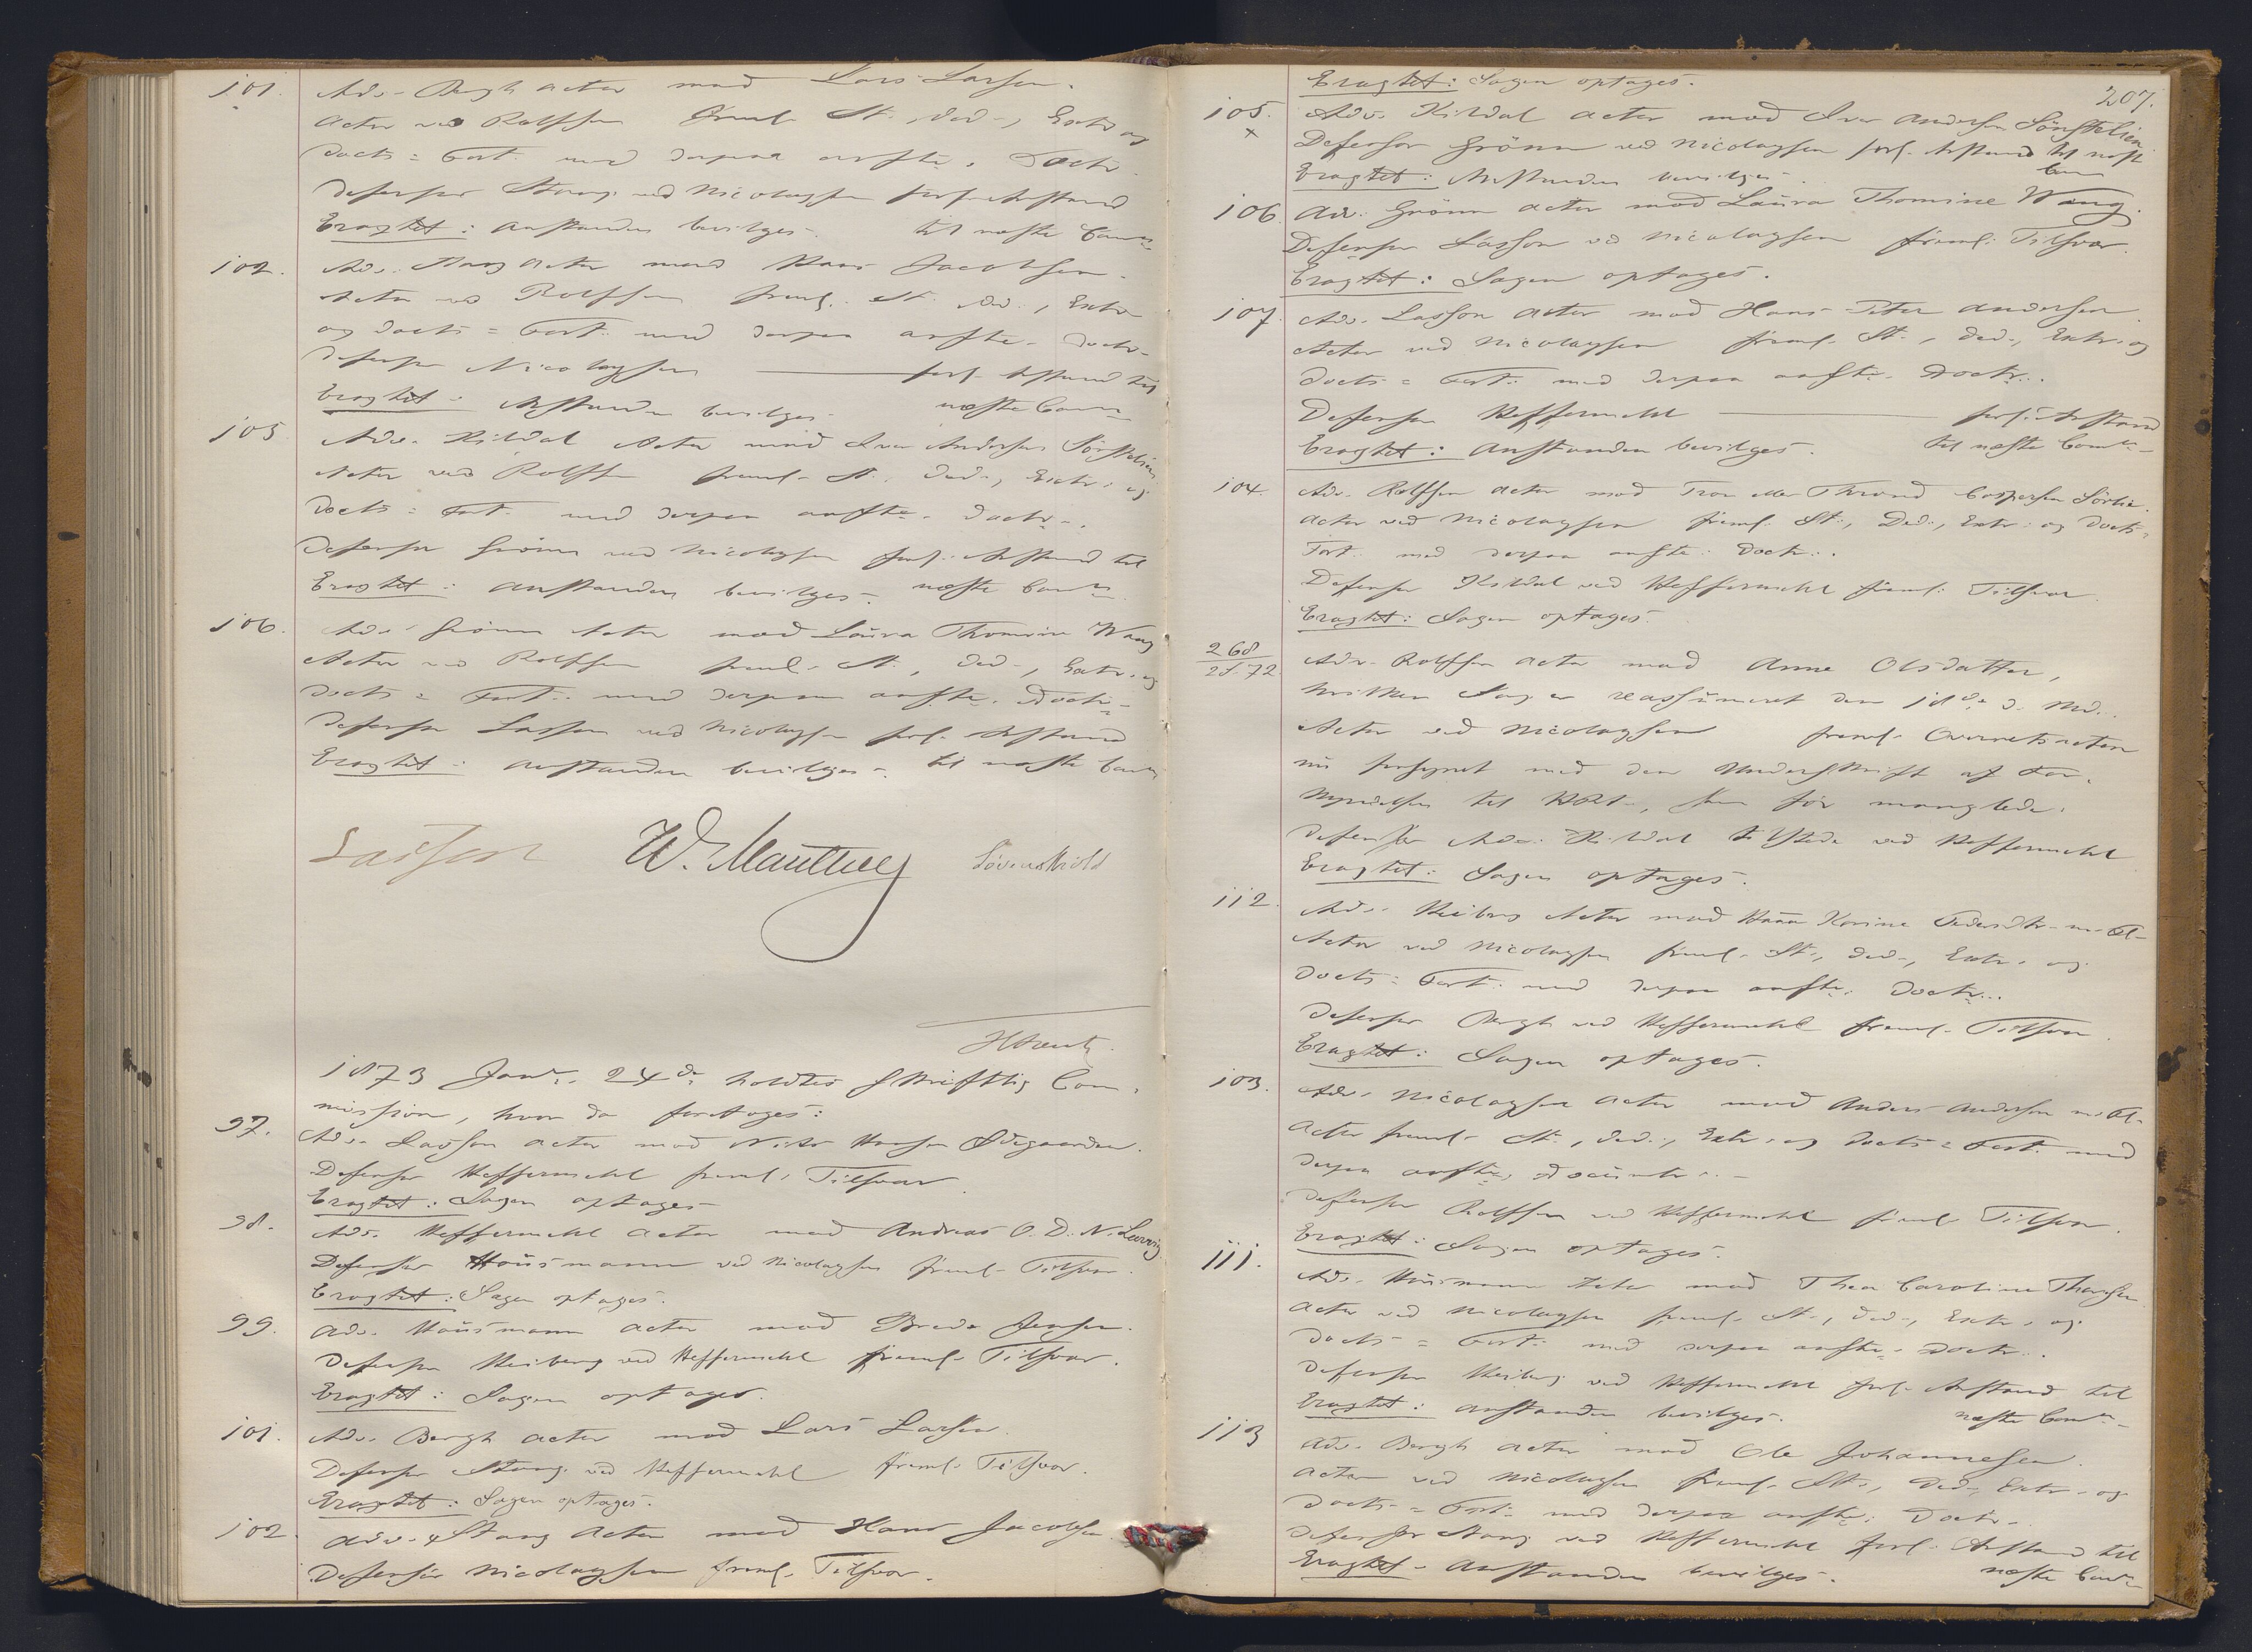 101. Adv. Bergh Actor mod Lars Larsen.
Actor ved Rolffsen freml. St., Ded., Extr. og
Docts = Fort. med derpaa anfte. Doctr.
Defensor Stang ved Nicolaysen forl. Anstand
Eragtet: Anstanden bevilges. til næste Comn
102. Adv. Stang Actor mod Hans Jacobsen.
Actor ved Rolffsen freml. St. Ded., Extr.
og Docts = Fort. med derpaa anfte. Doctr.
Defensor Nicolaysen forl. Anstand til
Eragtet: Anstanden bevilges. næste Comn
105 Adv. Kildal Actor mod Iver Andersen Sönstelien
Actor ved Rolffsen freml. St., Ded., Extr. og
Docts = Fort. med derpaa anfte. Doctr.
Defensor Grönn ved Nicolaysen forl. Anstand til
Eragtet: Anstanden bevilges. næste Comn
106. Adv. Grönn Actor mod Laura Thomine Wang
Actor ved Rolffsen freml. St., Ded., Extr. og
Docts = Fort. med derpaa anfte. Doctr.
Defensor Lasson ved Nicolaysen forl. Anstand
Eragtet: Anstanden bevilges. til næste Comn
Lasson W. Manthey Løvenskiold
1873 Janr. 24de holdtes skriftlig Com-
mission, hvor da foretoges:
97. Adv. Lasson Actor mod Nils Hansen Ødegaarden.
Defensor Heffermehl freml. Tilsvar.
Eragtet: Sagen optages.
98. Adv. Heffermehl Actor mod Andreas O. D. N. Lervig.
Defensor Housmann ved Nicolaysen freml. Tilsvar.
Eragtet: Sagen optages.
99. Adv. Housmann Actor mod Brede Jensen.
Defensor Heiberg ved Heffermehl freml. Tilsvar.
Eragtet: Sagen optages.
101. Adv. Bergh Actor mod Lars Larsen.
Defensor Stang ved Heffermehl freml. Tilsvar.
Eragtet: Sagen optages.
102 Adv. Stang Actor mod Hans Jacobsen
Defensor Nicolaysen freml. Tilsvar.
207.
Eragtet: Sagen optages.
105. Adv. Kildal Actor mod Iver Andersen Sönstelien
Defensor Grönn ved Nicolaysen forl. Anstand til næste
Eragtet: Anstanden bevilges. Comn
106 Adv. Grönn Actor mod Laura Thomine Wang.
Defensor Lasson ved Nicolaysen freml. Tilsvar.
Eragtet: Sagen optages.
107. Adv. Lasson Actor mod Hans Peter Andersen.
Actor ved Nicolaysen freml. St., Ded., Extr. og
Docts = Fort. med derpaa anfte. Doctr.
Defensor Heffermehl forl. Anstand
Eragtet: Anstanden bevilges. til næste Comn
104. Adv. Rolffsen Actor mod Tron eller Thrond Caspersen Sörlie.
Actor ved Nicolaysen freml. St., Ded., Extr. og Docts =
Fort. med derpaa anfte. Doctr.
Defensor Kildal ved Heffermehl freml. Tilsvar.
Eragtet: Sagen optages.
268 Adv. Rolffsen Actor mod Anne Olsdatter,
hvilken Sag er reassumeret den 18de d. Md.
Actor ved Nicolaysen freml. Overretsacten
nu forsynet med den Underskrift af For-
som før manglede.
Defensor Adv. Kildal tilstede ved Heffermehl
Eragtet: Sagen optages.
112. Adv. Heiberg Actor mod Karine m. fl.
Actor ved Nicolaysen freml. St., Ded., Extr. og
Docts = Fort. med derpaa anfte. Doctr.
Defensor Bergh ved Heffermehl freml. Tilsvar.
Eragtet: Sagen optages.
103. Adv. Nicolaysen Actor mod Anders Andersen m. fl.
Actor freml. St., Ded., Extr. og Docts = Fort. med
derpaa anfte. Documtr.
Defensor Rolffsen ved Heffermehl freml. Tilsvar.
Eragtet: Sagen optages.
111. Adv. Housmann Actor mod Thea Caroline
Actor ved Nicolaysen freml. St., Ded., Extr. og
Docts = Fort. med derpaa anfte. Doctr.
Defensor Heiberg ved Heffermehl forl. Anstand til
Eragtet: Anstanden bevilges. næste Comn
113 Adv. Bergh Actor mod Ole Johannesen.
Actor ved Nicolaysen freml. St., Ded., Extr. og
Docts = Fort. med derpaa anfte. Doctr.
Defensor Stang ved Heffermehl forl. Anstand til
Eragtet: Anstanden bevilges. næste Comn